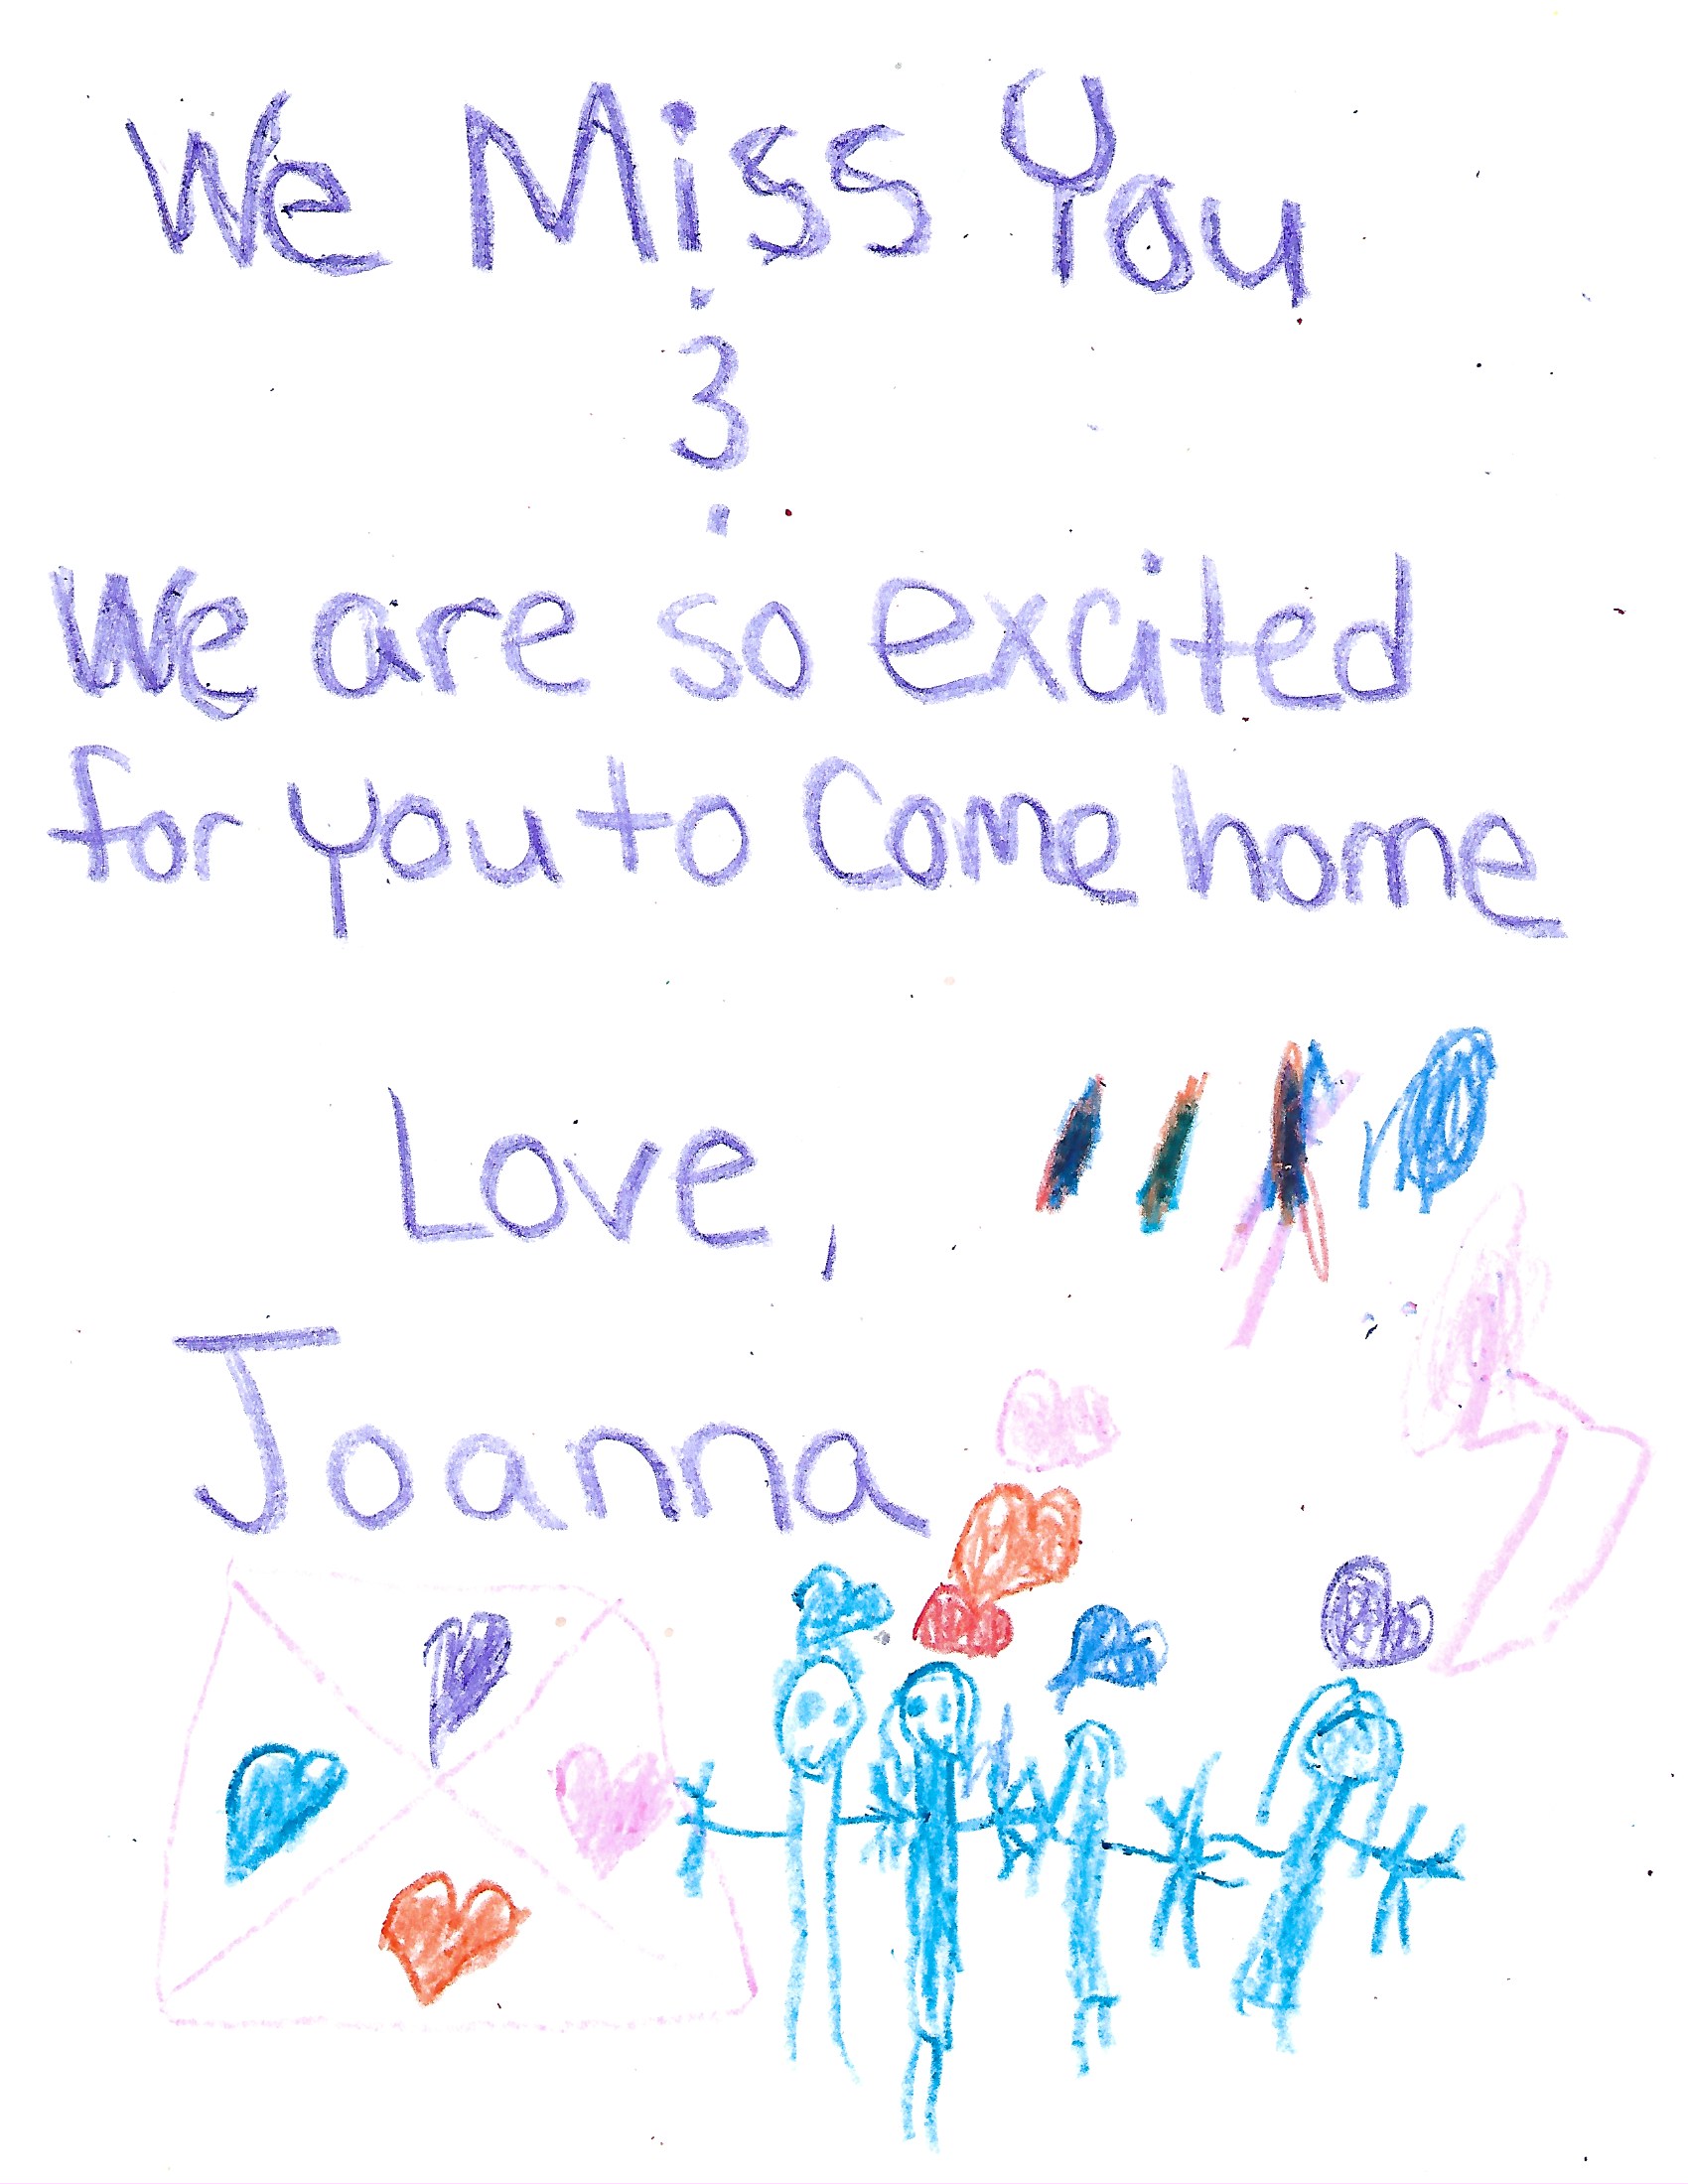 We Miss You
3
We are so excited
for you to Come home
Love,
Joanna